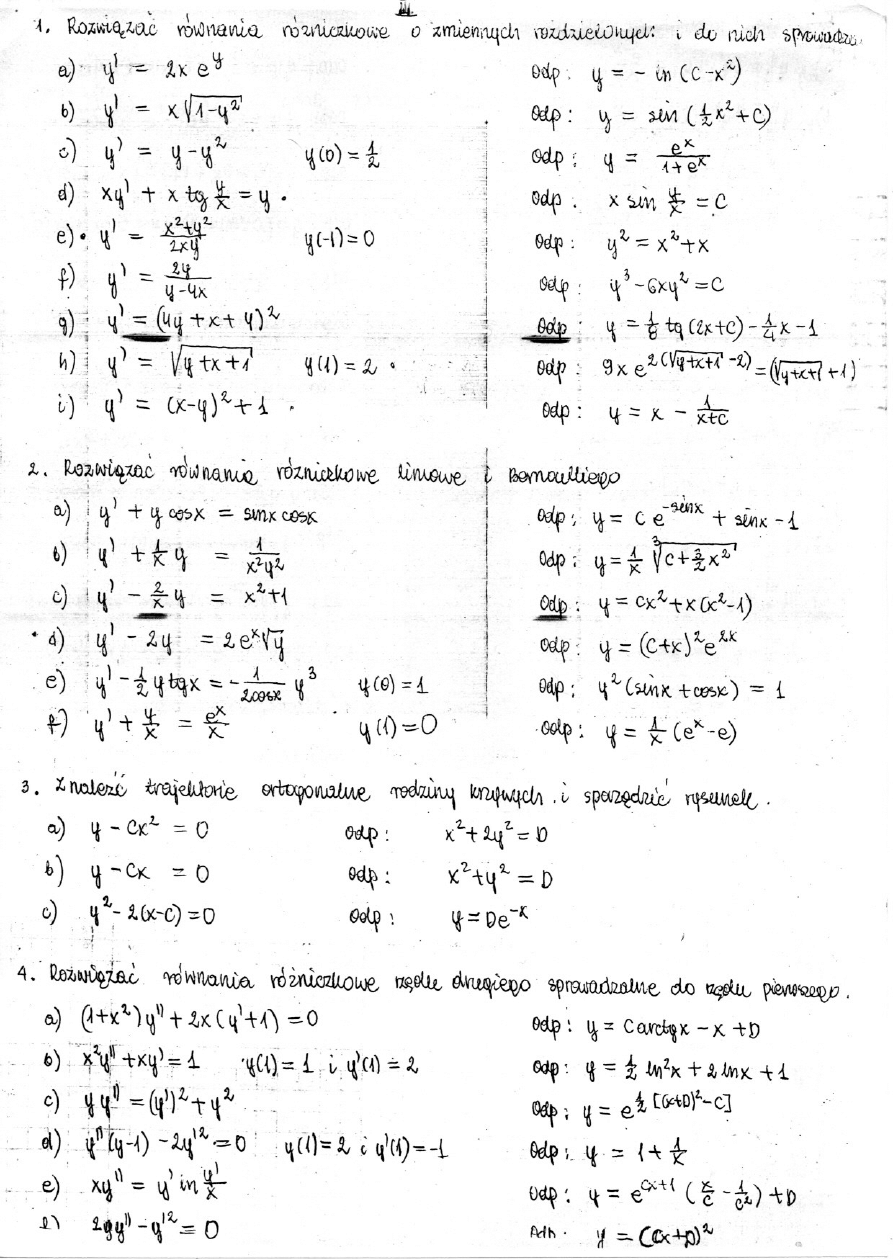 1. Rozwiązać równania różniczkowe o zmiennych rozdzielonych: i do nich sprowadza.
a) y' = 2x e^y Odp: y = - ln (C-x²)
b) y' = x√(1-y²) Odp: y = sin (½x²+C)
c) y' = y-y² y(0) = ½ Odp: y = e^x/(1+e^x)
d) xy' + x tg y/x = y . Odp. x sin y/x = C
e) • y' = (x²+y²)/(2xy) y(-1) = 0 Odp: y² = x²+x
f) y' = 2y/(y-4x) Odp: y³-6xy² = C
g) y' = (4y+x+4)² Odp: y = ⅛ tg (2x+C) - ¼x - 1
h) y' = √(y+x+1) y(1) = 2 . Odp: 9x e^(2(√(y+x+1) -2)) = (√(y+x+1) +1)
i) y' = (x-y)² + 1 . Odp: y = x - 1/(x+C)
2. Rozwiązać równania różniczkowe liniowe i Bernoulliego
a) y' + y cosx = sinx cosx Odp: y = C e^(-sinx) + sinx - 1
b) y' + 1/x y = 1/(x²y²) Odp: y = 1/x ∛(C + 3/2 x²)
c) y' - 2/x y = x²+1 Odp: y = cx² + x(x²-1)
• d) y' - 2y = 2e^x √y Odp: y = (C+x)² e^(2x)
e) y' - ½ y tgx = - 1/(2cosx) y³ y(0) = 1 Odp: y² (sinx + cosx) = 1
f) y' + y/x = e^x/x y(1) = 0 Odp: y = 1/x (e^x - e)
3. Znaleźć trajektorie ortogonalne rodziny krzywych i sporządzić rysunek.
a) y - Cx² = 0 Odp: x² + 2y² = D
b) y - Cx = 0 Odp: x² + y² = D
c) y² - 2(x-C) = 0 Odp: y = De^(-x)
4. Rozwiązać równania różniczkowe rzędu drugiego sprowadzalne do rzędu pierwszego.
a) (1+x²)y'' + 2x(y'+1) = 0 Odp: y = C arctgx - x + D
b) x²y'' + xy' = 1 y(1) = 1 i y'(1) = 2 Odp: y = ½ ln²x + 2 lnx + 1
c) yy'' = (y')² + y² Odp: y = e^(½[(x+D)²-C])
d) y''(y-1) - 2y'² = 0 y(1) = 2 i y'(1) = -1 Odp: y = 1 + 1/x
e) xy'' = y' ln y'/x Odp: y = e^(Cx+1) (x/C - 1/C²) + D
2yy'' - y'² = 0 y = (Cx+D)²